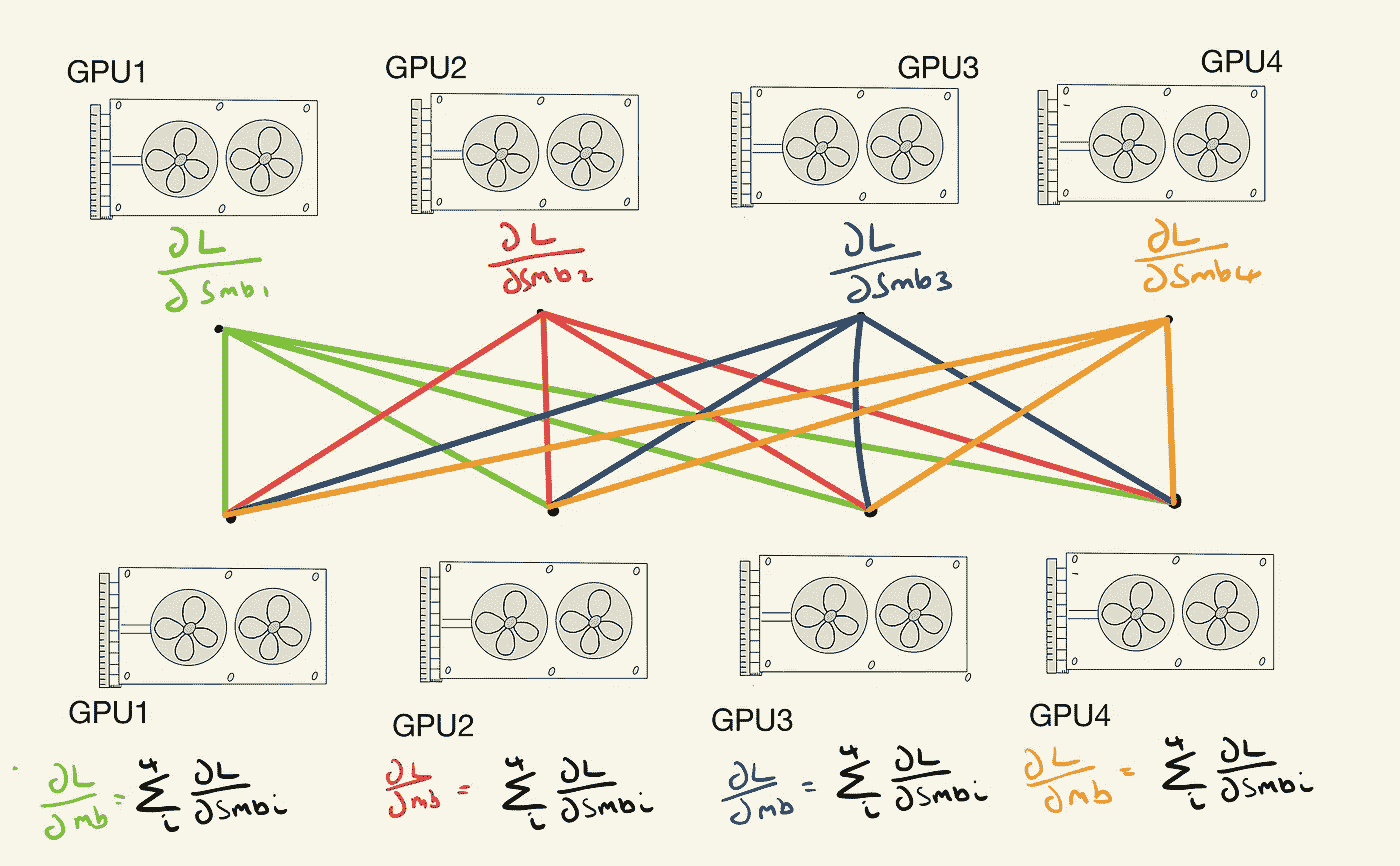 GPU1 GPU2 GPU3 GPU4
∂L/∂smb₁ ∂L/∂smb₂ ∂L/∂smb₃ ∂L/∂smb₄
GPU1 GPU2 GPU3 GPU4
∂L/∂mb = Σᵢ⁴ ∂L/∂smbᵢ ∂L/∂mb = Σᵢ⁴ ∂L/∂smbᵢ ∂L/∂mb = Σᵢ⁴ ∂L/∂smbᵢ ∂L/∂mb = Σᵢ⁴ ∂L/∂smbᵢ